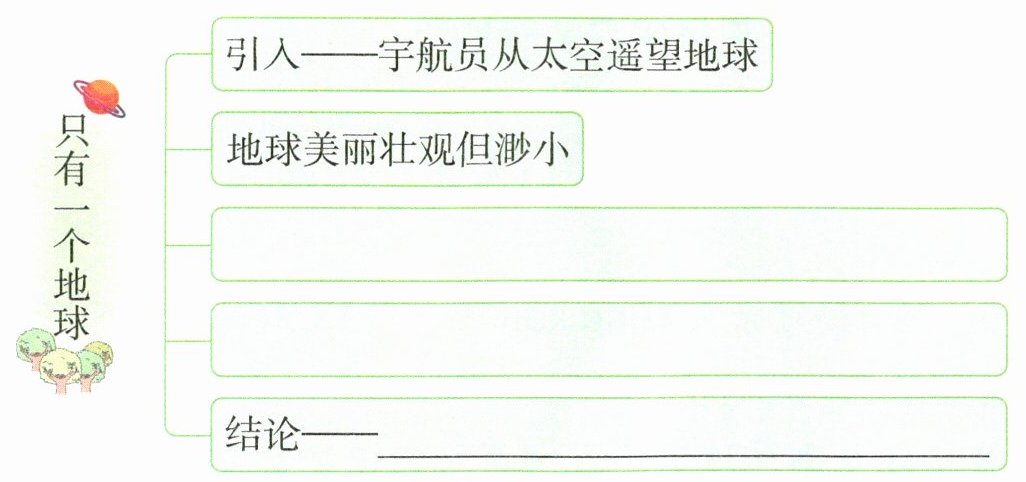 只有一个地球
引入——宇航员从太空遥望地球
地球美丽壮观但渺小
结论——